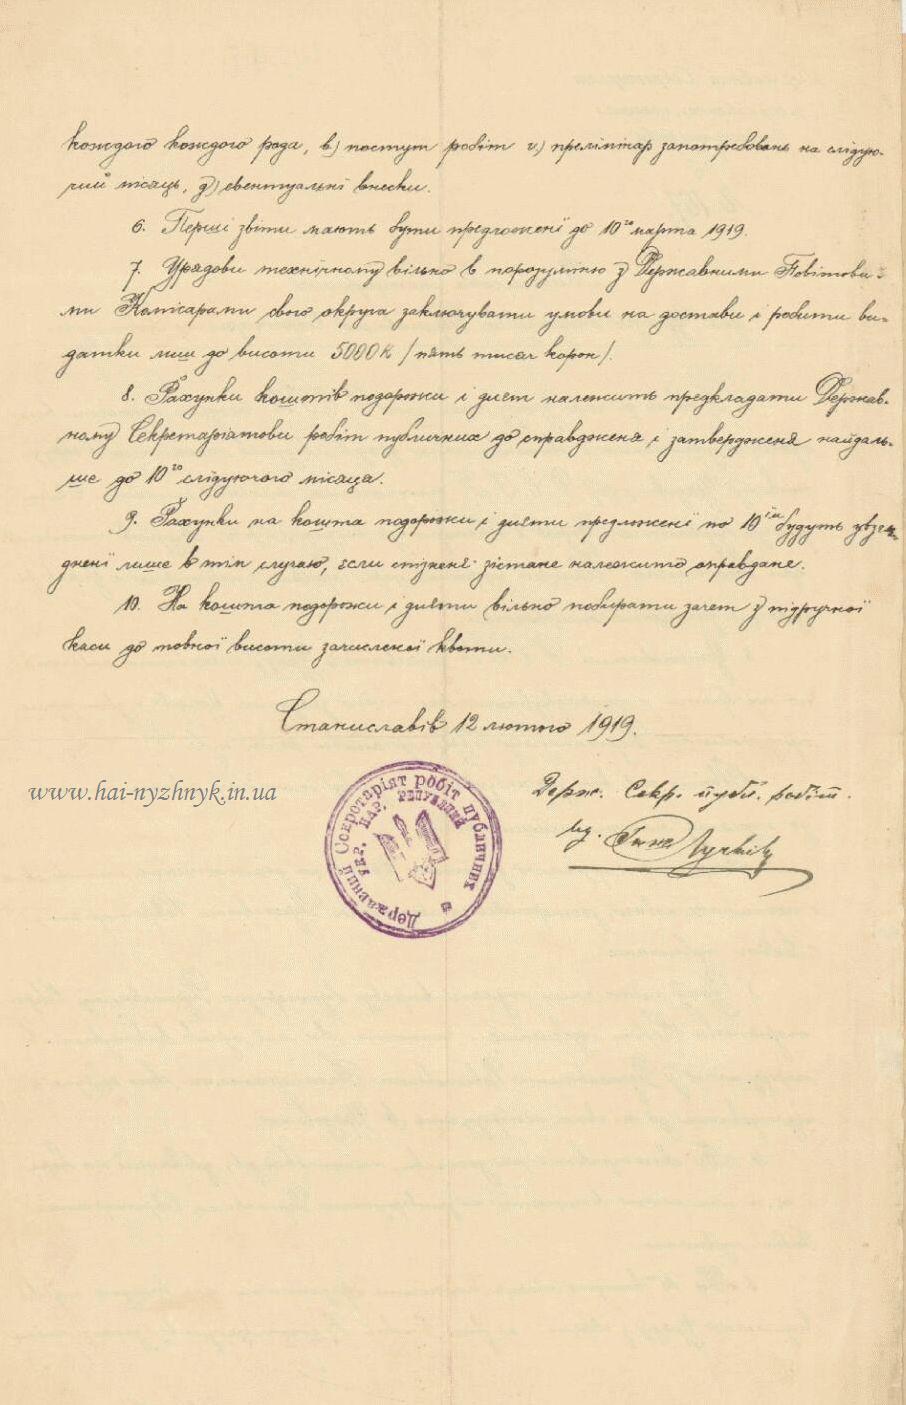 кождого кождого рода, в) поступ робіт г) прелімінар запотрібовань на слідую-
чий місяць, д) евентуальні внески.
6. Перші звіти мають бути предложені до 10го марта 1919.
7. Урядови технічному вільно в порозумінню з Державними Повітови-
ми Комісарами свого округа заключувати умови на достави і робити ви-
датки лиш до висоти 5000 К /пять тисяч корон/.
8. Рахунки коштів подорожи і дієт належить предкладати Держав-
ному Секретаріятови робіт публичних до справдженя і затвердженя найдаль-
ше до 10го слідуючого місяця.
9. Рахунки на кошта подорожи і дієти предложені по 10ім будуть узгля-
днені лише в тім случаю, если спізненє зістане належито оправдане.
10. На кошта подорожи і дієти вільно побирати зачет з підручної
каси до повної висоти зачисленої квоти.
Станиславів 12 лютого 1919.
www.hai-nyzhnyk.in.ua
Держ. Секр. публ. робіт.
Державний Секретаріят робіт публичних
УКР. НАР. РЕПУБЛИКИ